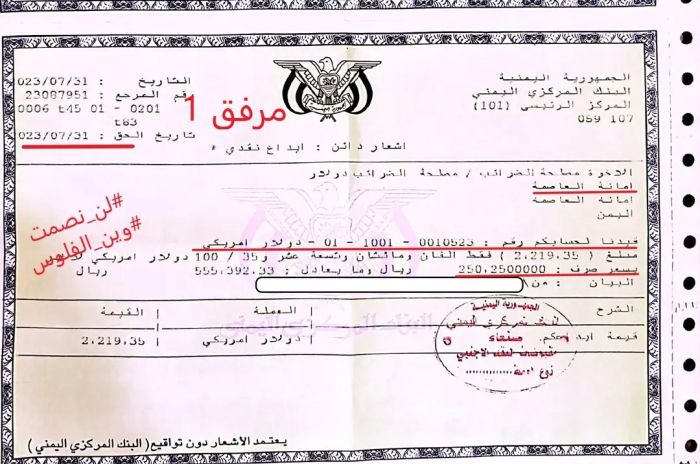 الجمهورية اليمنية
البنك المركزي اليمني
المركز الرئيسي (101)
059 107
التاريخ : 023/07/31
رقم المرجع : 23087951
0006 t45 01 - 0201
t63
تاريخ الحق : 023/07/31
مرفق 1
اشعار دائن : ايداع نقدي *
الاخوة مصلحة الضرائب / مصلحة الضرائب دولار
امانة العاصمة
امانة العاصمة
اليمن
#لن_نصمت
#وين_الفلوس
قيدنا لحسابكم رقم : 0010523 - 1001 - 01 - دولار امريكي
مبلغ ( 2,219.35 ) فقط الفان ومائتان وتسعة عشر و35 / 100 دولار امريكي لا
بسعر صرف : 250.2500000 ريال وما يعادل : 555,392.33 ريال
البيان : من
الشرح العملة القيمة
قيمة دولار امريكي 2,219.35
الجمهورية اليمنية
البنك المركزي اليمني
صنعاء
يعتمد الاشعار دون تواقيع (البنك المركزي اليمني)